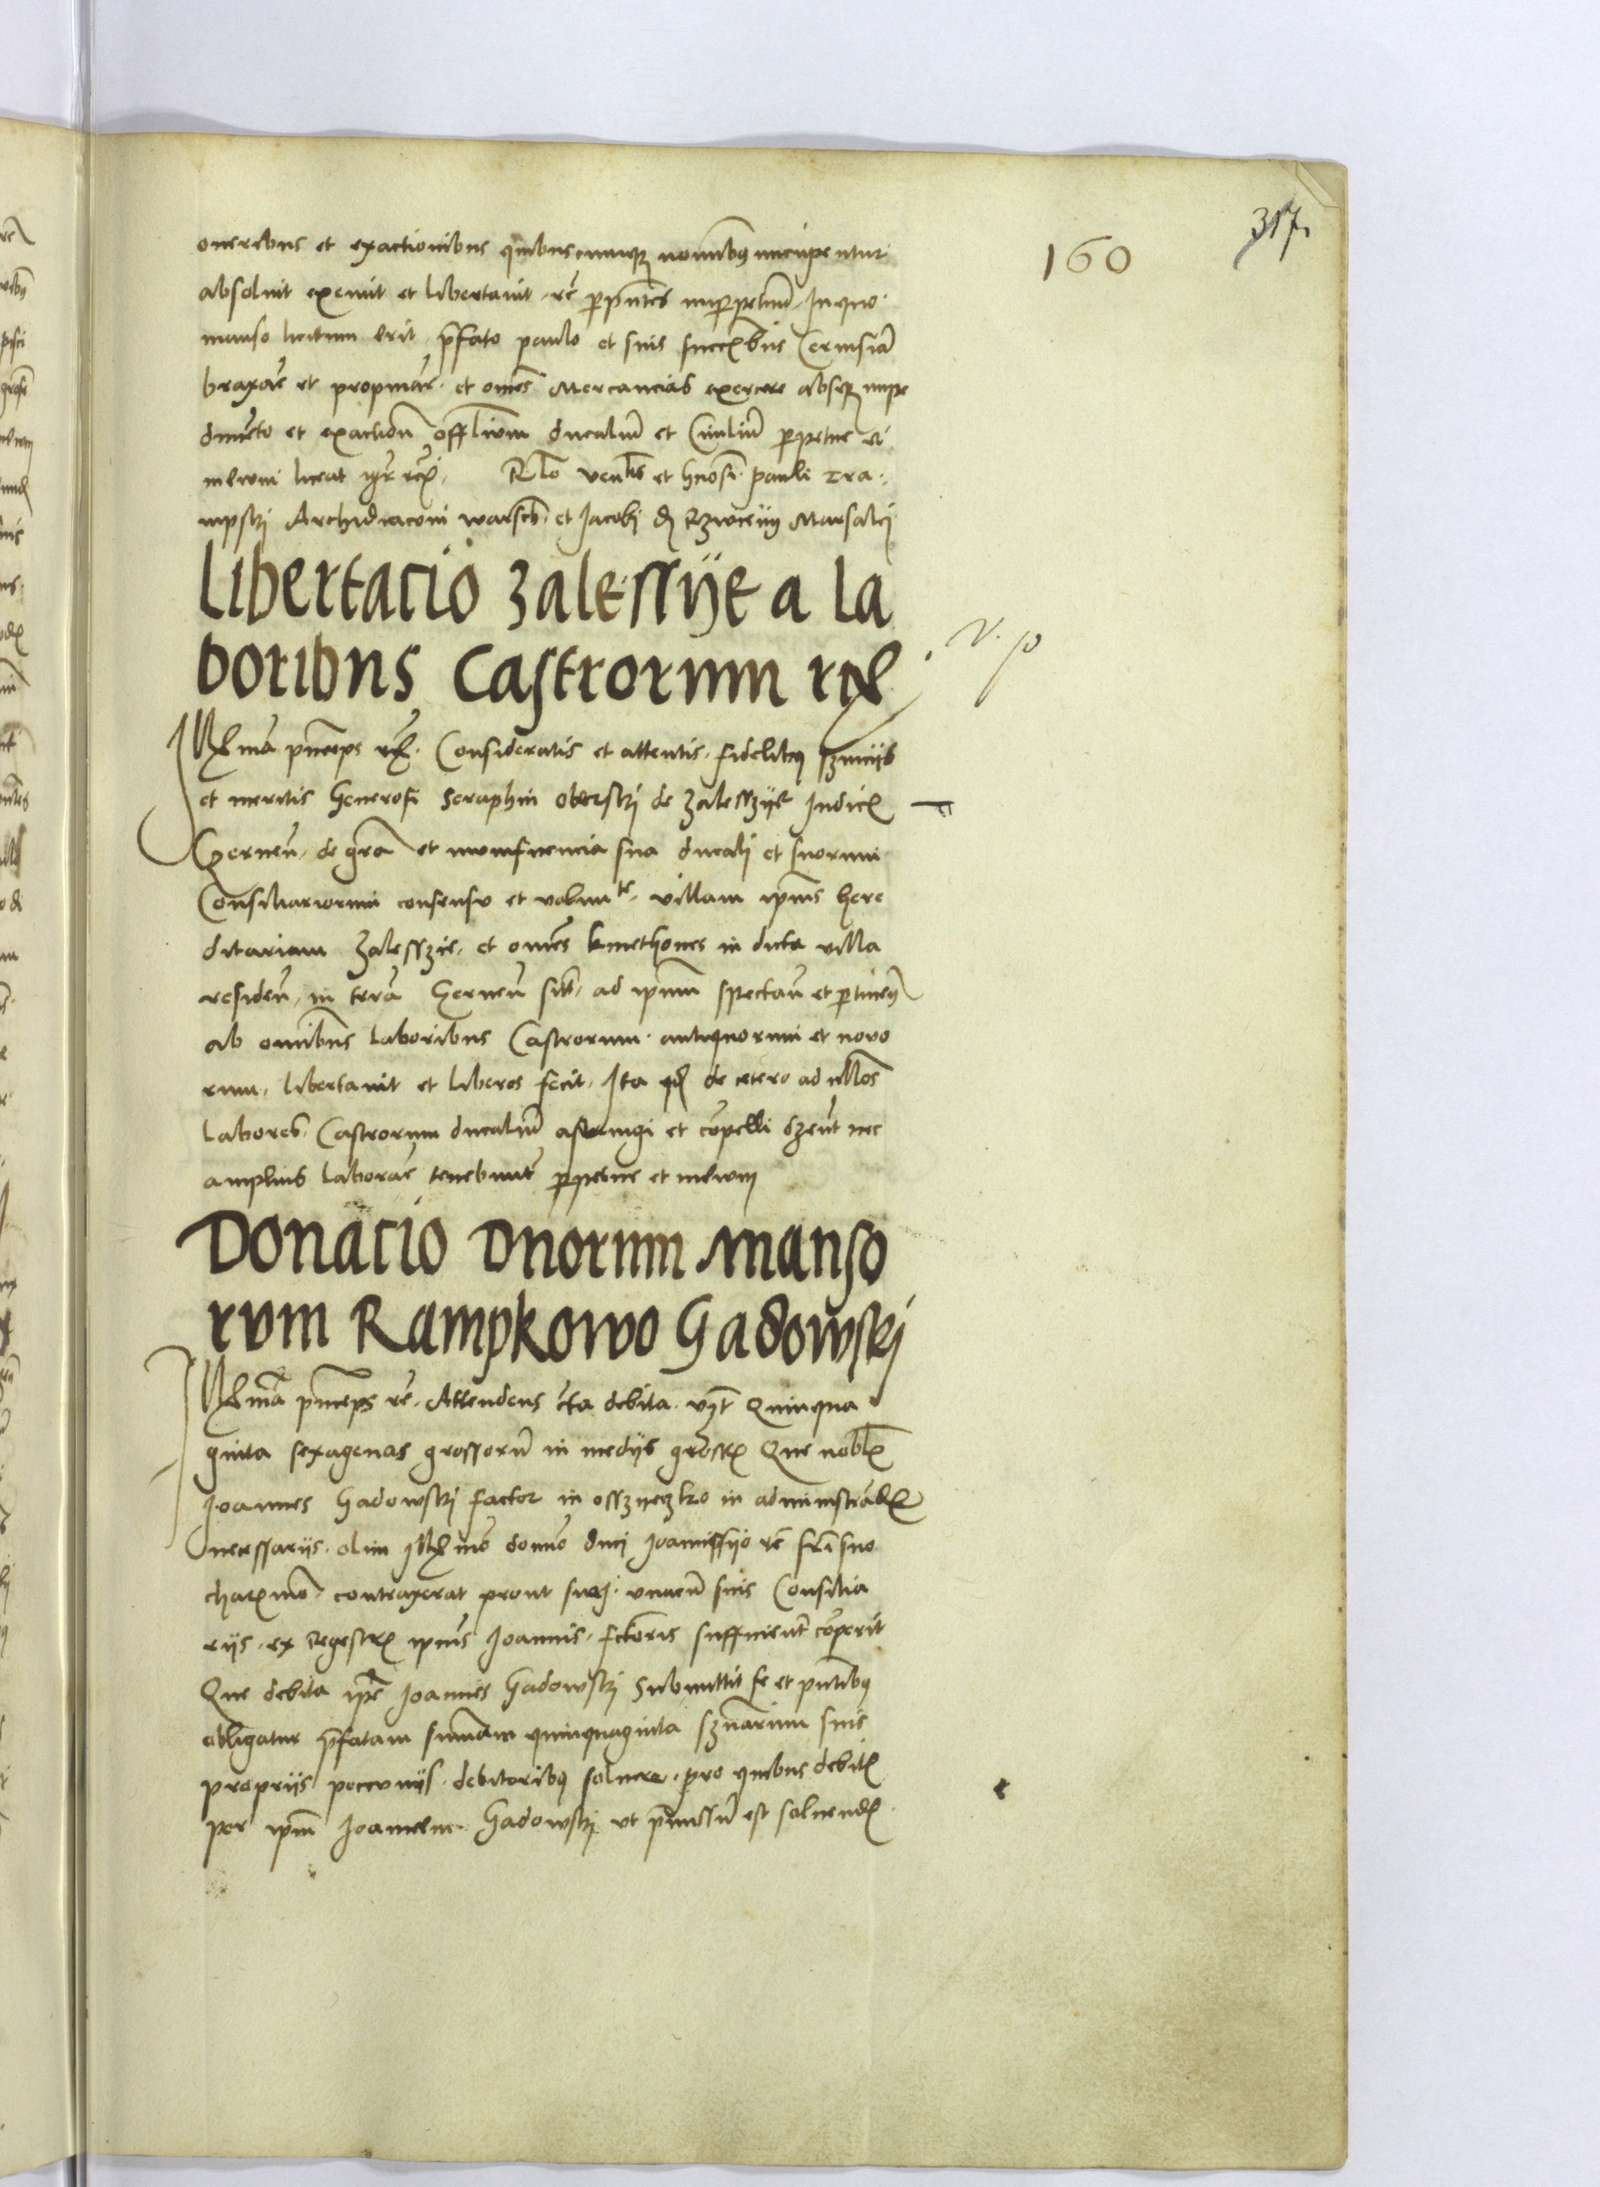 317
160
oneribus et exactionibus quibuscunque nominibus nuncupentur
absoluit exemit et libertauit rc p pntes imperpetuum. In quo
manso licitum erit prefato paulo et suis successoribus Ceruisiam
braxare et propinare. et omnes Mercancias exercere absque impe
dimento et exactione officialium ducalium et Ciuilium perpetue et
in euum
Rlo venlis et gnosi pauli
Archidiaconi warsch. et Jacobi de Marsalci
Libertacio zalessye a la
boribus Castrorum rcx
v. p
Illma princeps rcx. Consideratis et attentis. fidelibus seruiciis
et meritis Generosi Seraphin oborski de zaleszye Judicis
Czernen. de gracia et munificencia sua ducali et suorum
Consiliariorum consensu et volunte. villam ipsius here
ditariam zaleszie. et omnes kmethones in dicta villa
residen. in terra Czernen sitam. ad ipsum spectan et pertinen
ab omnibus laboribus Castrorum. antiquorum et nouo
rum. libertauit et liberos fecit. Ita quod de cetero ad ullos
labores Castrorum ducalium astringi et compelli debent nec
amplius laborare tenebuntur perpetue et in euum
Donacio duorum manso
rum Rampkowo Gadowski
Illma princeps rc. Attendens certa debita. vz Quinqua
ginta sexagenas grossorum in mediis grossis Que nobilis
Joannes Gadowski factor in in administrandis
necessariis. olim Illmo domino duci Joanissio rc fratri suo
charissimo. contraxerat prout sua. unacum suis Consilia
riis. ex regestris ipsius Joannis. factoris sufficienter comperit
Que debita ipse Joannes Gadowski submittit se et pntibus
obligatur prefatam summam quinquaginta sexagenarum suis
propriis peccuniis. debitoribus soluere. pro quibus debitis
per ipsum Joannem Gadowski ut premissum est soluendis